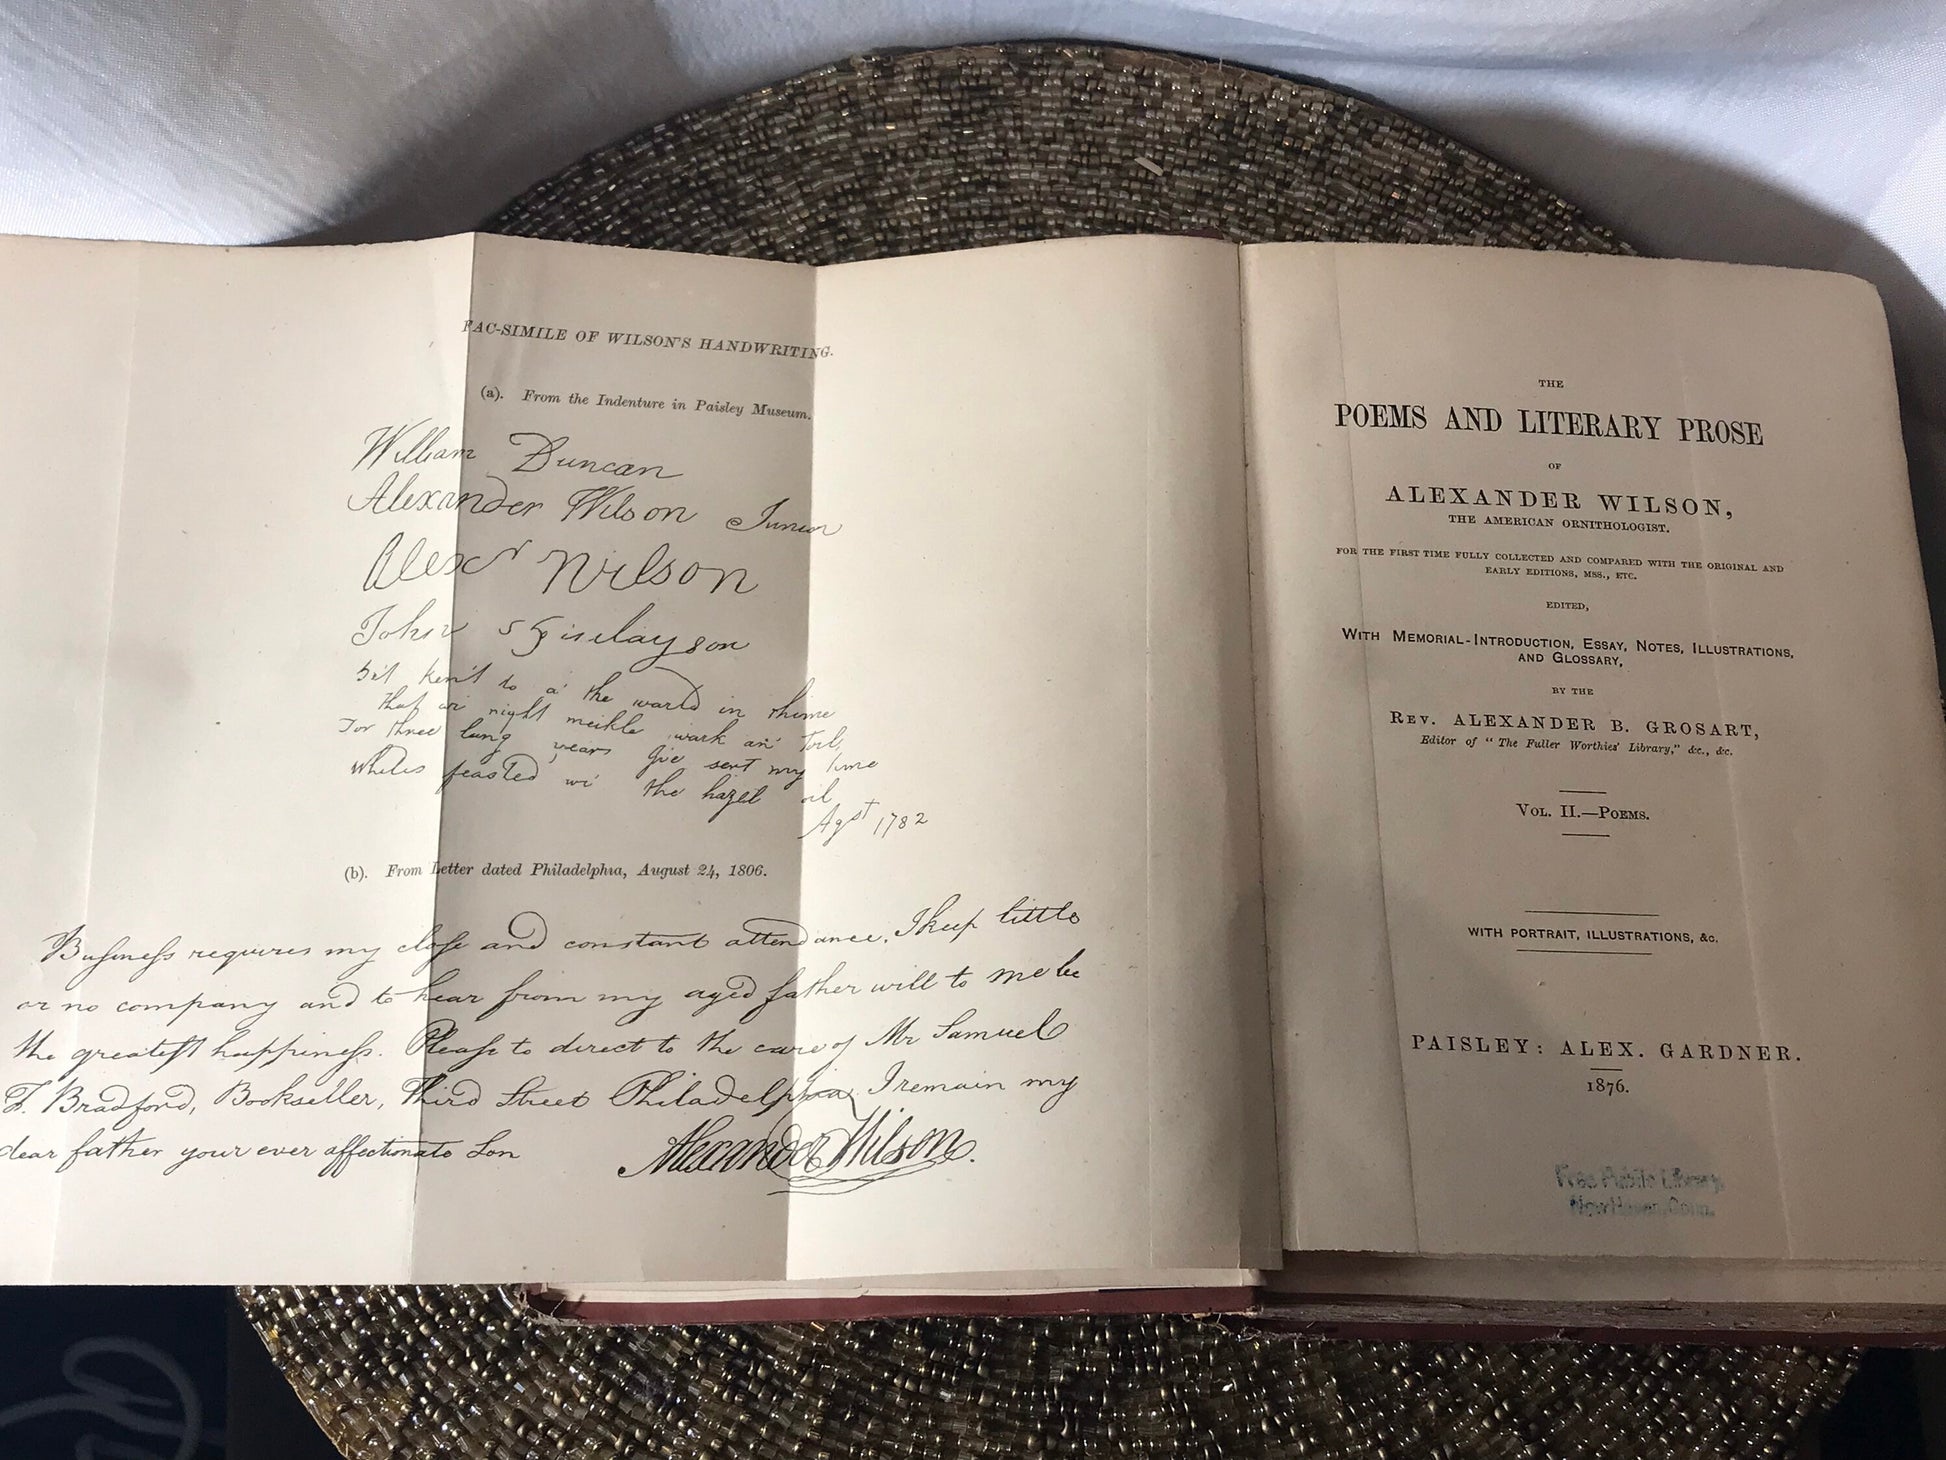 FAC-SIMILE OF WILSON'S HANDWRITING.
(a). From the Indenture in Paisley Museum.
William Duncan
Alexander Wilson Junior
Alexr Wilson
John Finlayson
be't ken't to a' the warld in rhime
That wi' might meikle wark an' Toil,
For three lang years I've sert my time
Whiles feasted wi' the hazel oil
Agst 1782
(b). From Letter dated Philadelphia, August 24, 1806.
Business requires my close and constant attendance. I keep little
or no company and to hear from my aged father will to me be
the greatest happiness. Please to direct to the care of Mr Samuel
F. Bradford, Bookseller, Third Street Philadelphia. I remain my
dear father your ever affectionate Son
Alexander Wilson.
THE
POEMS AND LITERARY PROSE
OF
ALEXANDER WILSON,
THE AMERICAN ORNITHOLOGIST.
FOR THE FIRST TIME FULLY COLLECTED AND COMPARED WITH THE ORIGINAL AND
EARLY EDITIONS, MSS., ETC.
EDITED,
WITH MEMORIAL-INTRODUCTION, ESSAY, NOTES, ILLUSTRATIONS,
AND GLOSSARY,
BY THE
REV. ALEXANDER B. GROSART,
Editor of "The Fuller Worthies' Library," &c., &c.
VOL. II.—POEMS.
WITH PORTRAIT, ILLUSTRATIONS, &c.
PAISLEY: ALEX. GARDNER.
1876.
Free Public Library,
New Haven, Conn.